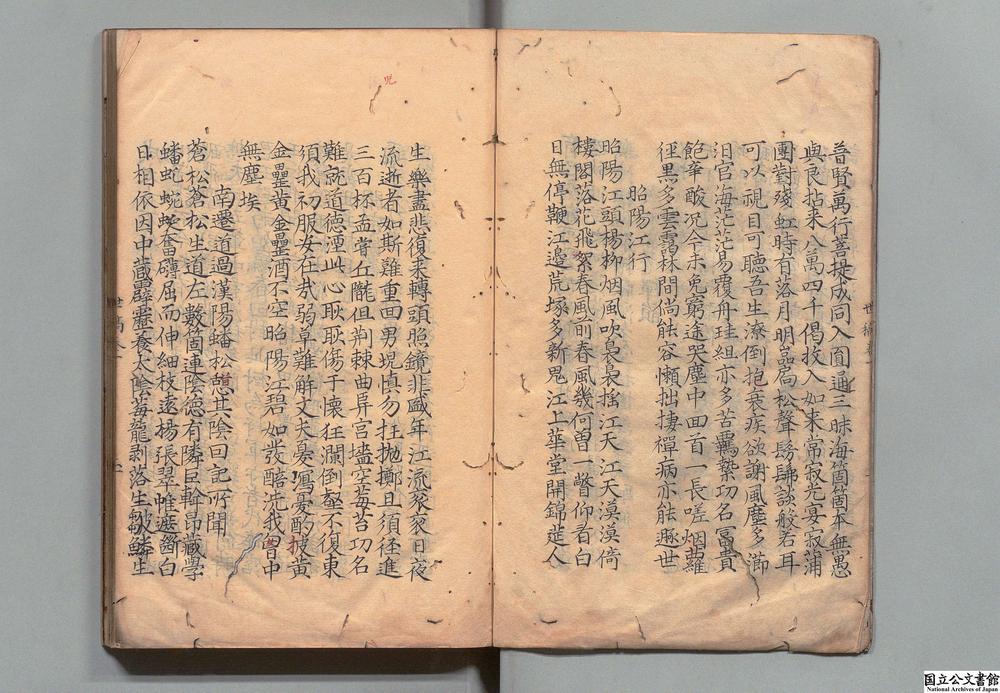 普賢萬行菩提成同入圓通三昧海箇箇本無愚
與良拈來八萬四千偈攷入如來常寂光宴寂蒲
團對殘虹時有落月明嵓扃松聲髣髴談般若耳
可以視目可聽吾生潦倒抱衰疾欲謝風塵多滯
汩官海茫茫易覆舟珪組亦多苦羈縶功名冨貴
飽辛酸况今未免窮途哭塵中回首一長嗟烟蘿
徑裏多雲霭林間尚能容懶拙捿禪病亦能遯世
昭陽江行
昭陽江頭楊柳烟風吹裊裊搖江天江天漠漠倚
樓閣落花飛絮春風前春風幾何曽一瞥仰看白
日無停鞭江邉荒塚多新鬼江上華堂開錦莚人
生樂盡悲復来轉頭昭鏡非盛年江流衮衮日夜
流逝者如斯難重回男児慎勿狂抛擲且須徑進
三百杯孟嘗丘隴但荆棘曲房宫壒空莓苔功名
難就道德湮此心耿耿傷于懐狂瀾倒壑不復東
須我初服女在㢤弱草難解丈夫憂㵼憂酌披黄
金罍黄金罍酒不空昭陽江碧如發醅洗我曽中
無塵埃
南遷道過漢陽蟠松憩其陰回記所聞
蒼松蒼松生道左數箇連陰德有隣巨幹昂藏學
蟠虬蜿蜒奮礴屈而伸細枝遠揚張翠帷遮斷白
日相依因中藏霹靂養太陰莓龍剥落生皴鱗生
児
国立公文書館
National Archives of Japan